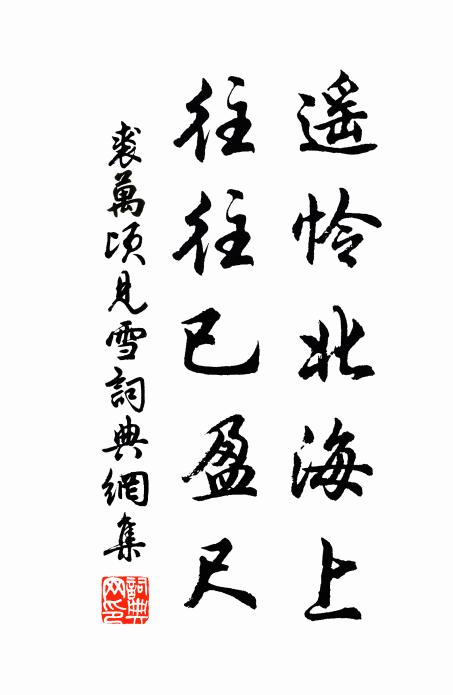 遥怜北海上
往往已盈尺
裘萬頃見雪詞典網集
詞典网印